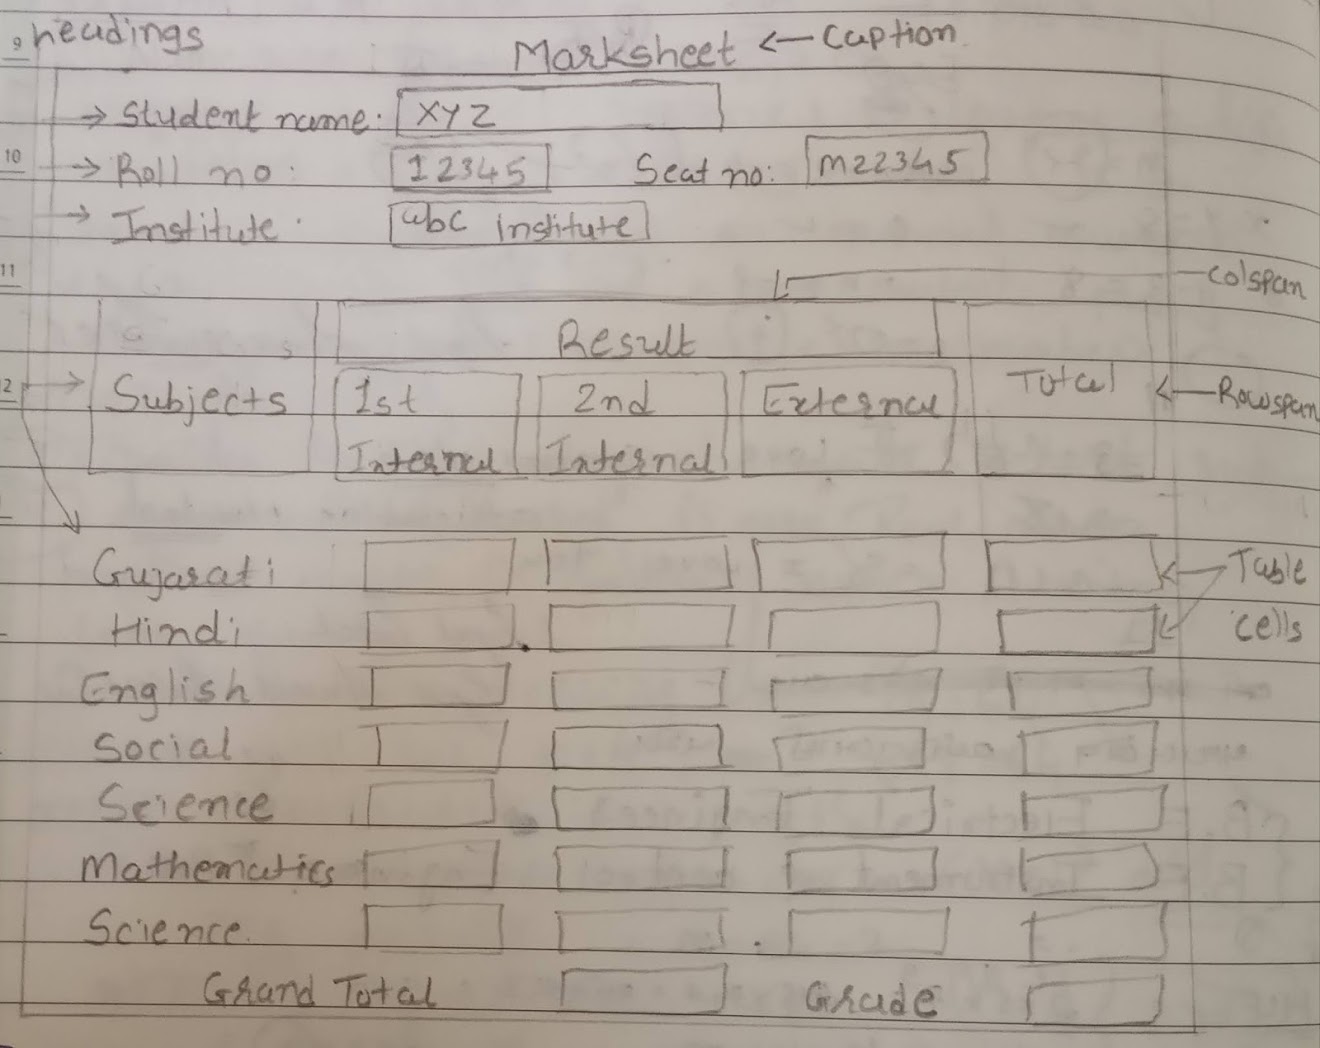 9 headings
Marksheet ← caption
→ Student name: XYZ
10 → Roll no: 12345 Seat no: M22345
→ Institute: abc institute
11 colspan
Result
→ Subjects 1st Internal 2nd Internal External Total ← Rowspan
Gujarati ← Table
Hindi cells
English
Social
Science
Mathematics
Science
Grand Total Grade